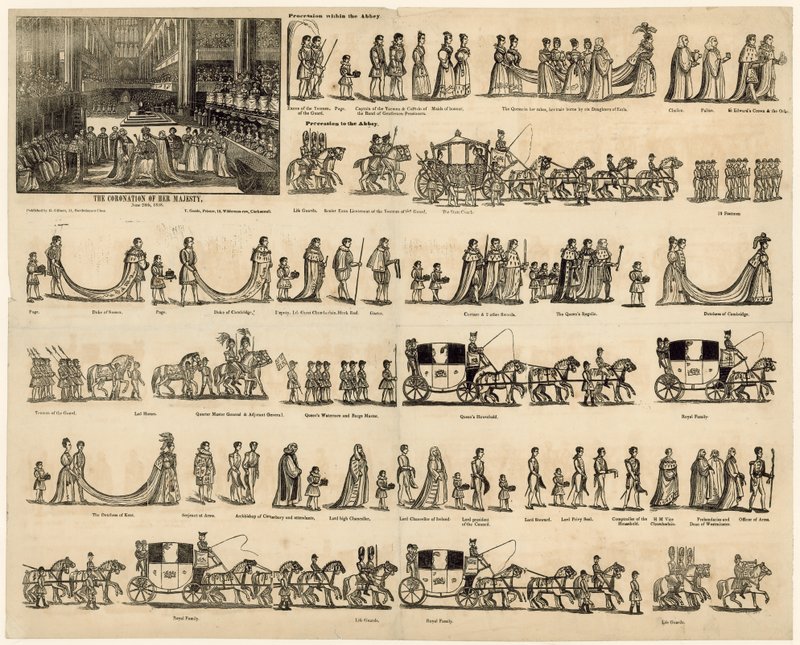 Procession within the Abbey.
Exons of the Yeomen, of the Guard.
Page.
Captain of the Yeomen & Captain of the Band of Gentlemen Pensioners.
Maids of honour.
The Queen in her robes, her train borne by six Daughters of Earls.
Chalice.
Patina.
St Edward's Crown & the Orb.
Procession to the Abbey.
Life Guards.
Senior Exon Lieutenant of the Yeomen of the Guard.
The State Coach.
12 Footmen
THE CORONATION OF HER MAJESTY,
June 28th, 1838.
Published by
Page.
Duke of Sussex.
Page.
Duke of Cambridge.
Deputy, Ld. Great Chamberlain.
Black Rod.
Garter.
Curtana & 2 other Swords.
The Queen's Regalia.
Dutchess of Cambridge.
Yeomen of the Guard.
Led Horses.
Quarter Master General & Adjutant General.
Queen's Watermen and Barge Master.
Queen's Household.
Royal Family.
The Dutchess of Kent.
Serjeant at Arms.
Archbishop of Canterbury and attendants,
Lord high Chancellor,
Lord Chancellor of Ireland.
Lord president of the Council.
Lord Steward.
Lord Privy Seal.
Comptroller of the Household.
H M Vice Chamberlain.
Prebendaries and Dean of Westminster.
Officer of Arms.
Royal Family.
Life Guards.
Royal Family.
Life Guards.